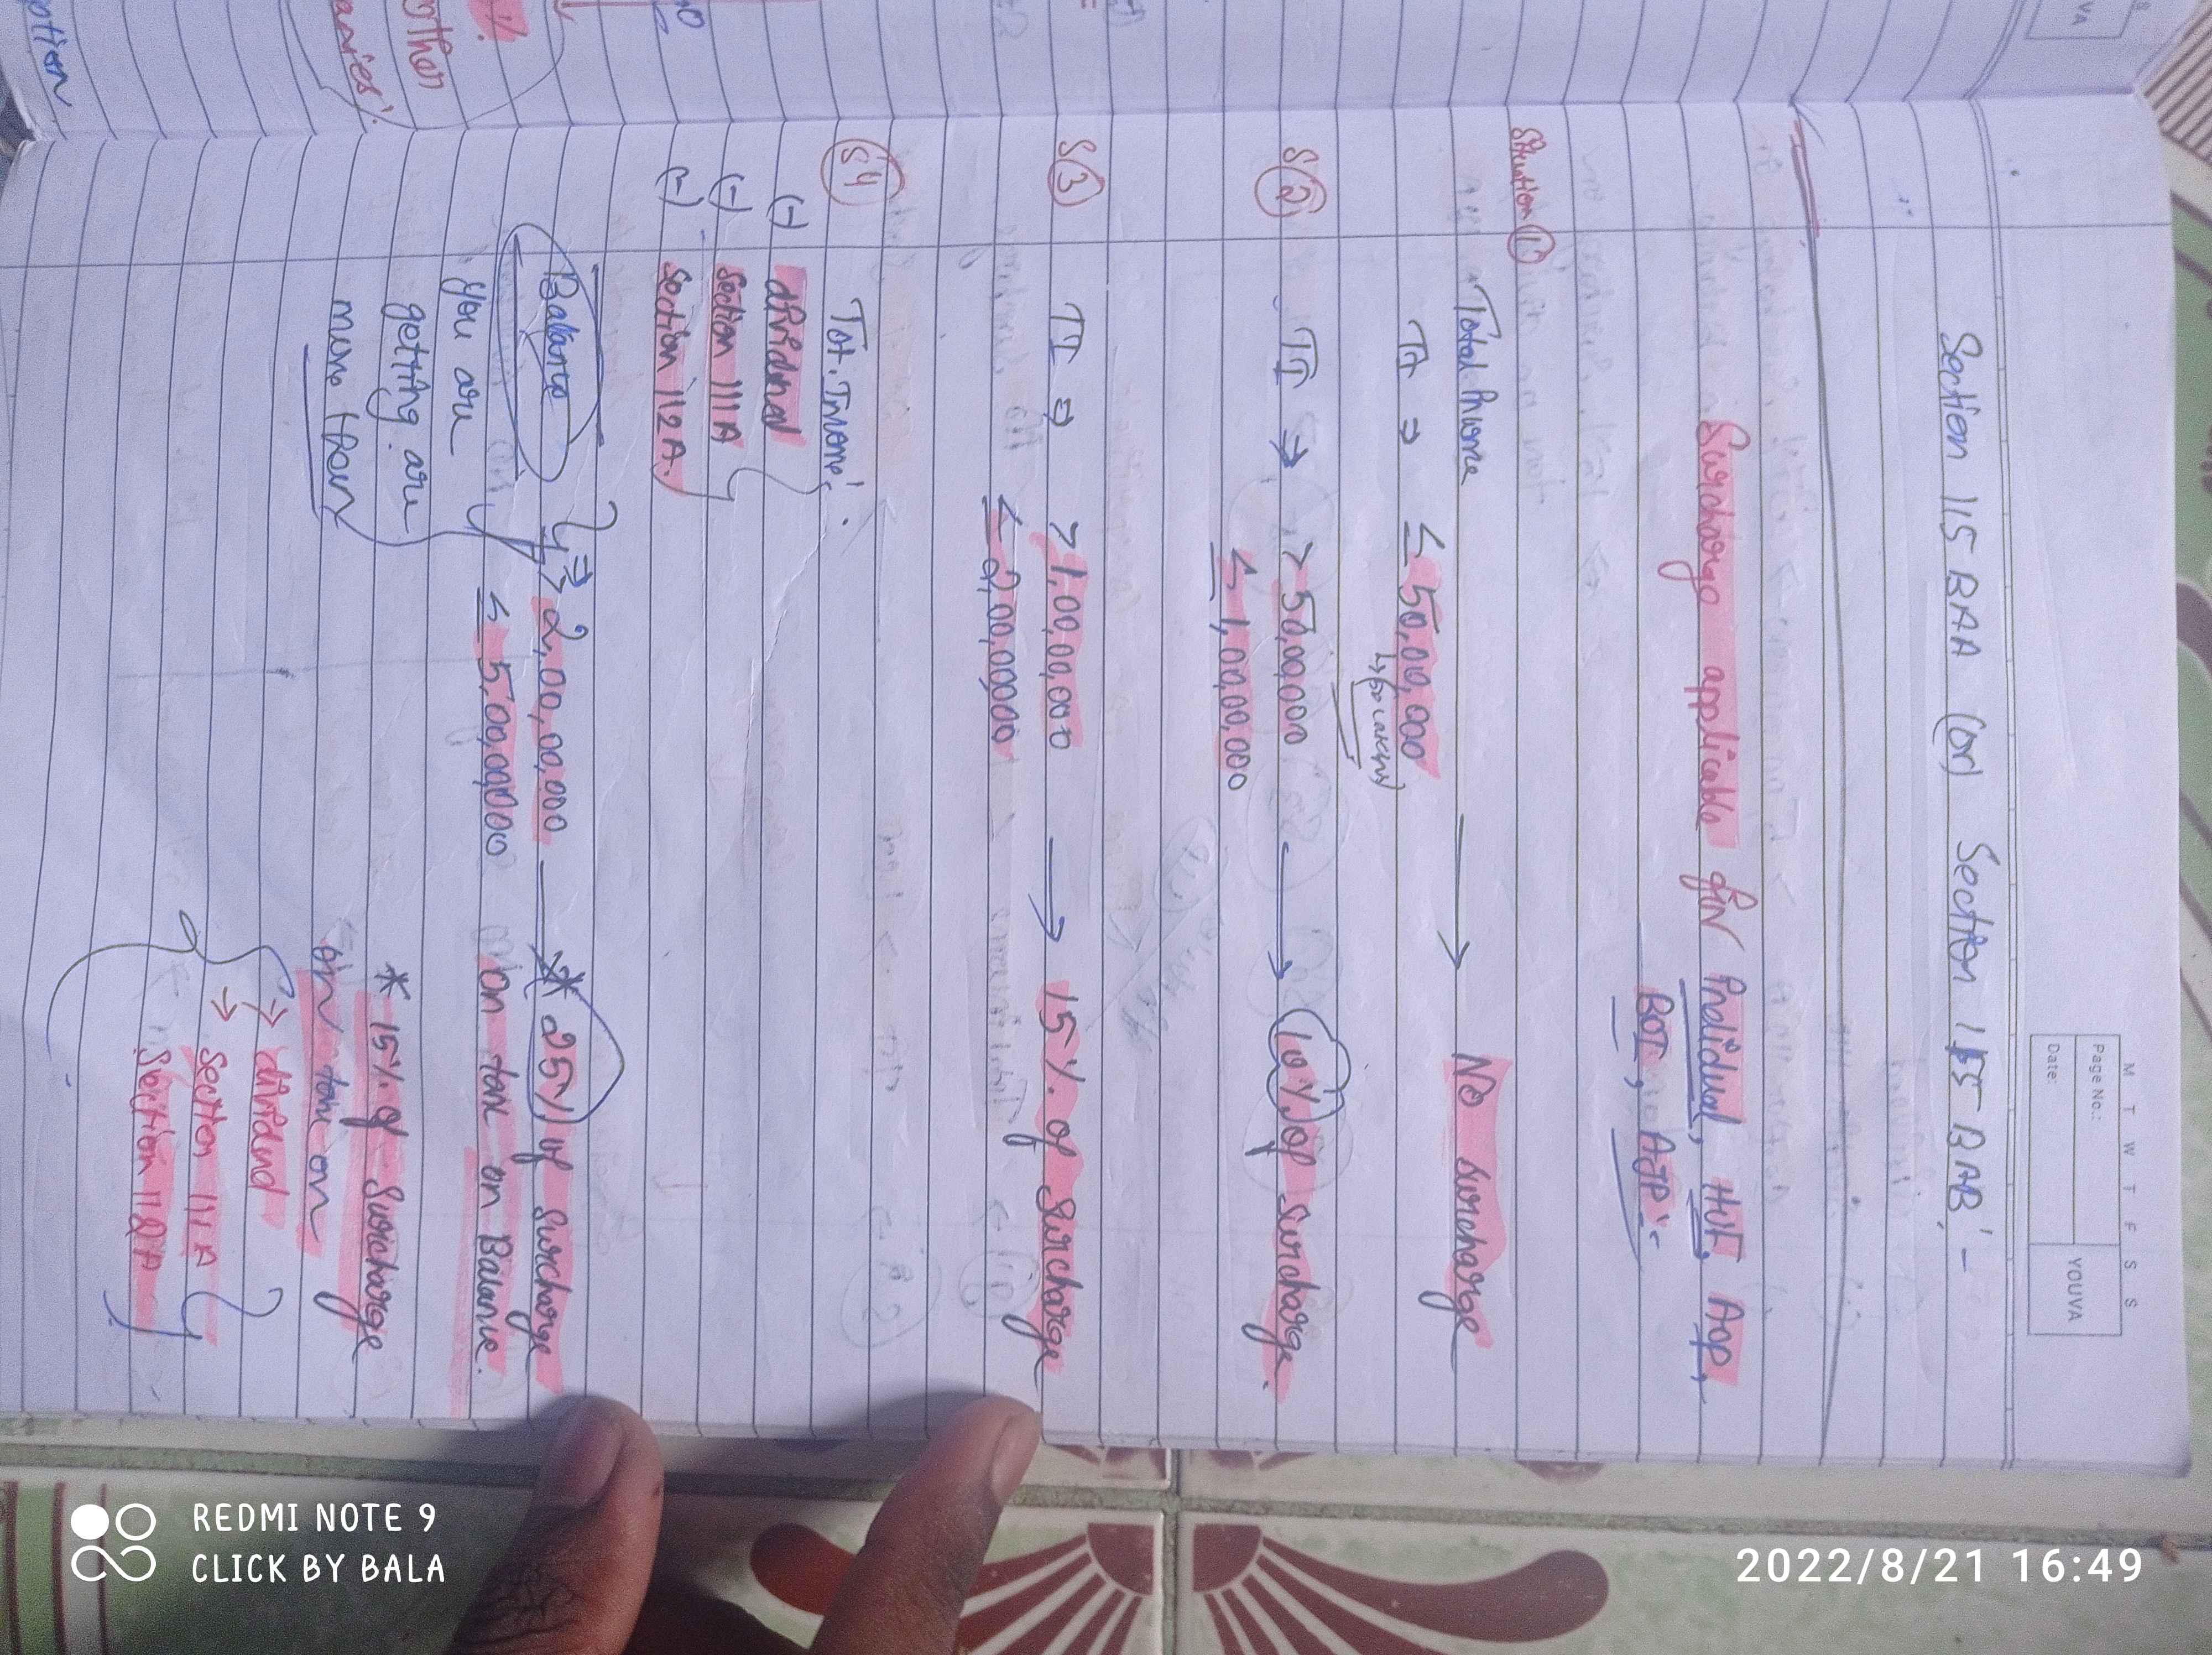 M T W T F S S
Page No.:
Date:
YOUVA
Section 115 BAA (or) Section 115 BAB'-
Surcharge applicable for Individual, HUF, AOP,
BOI, AJP'-
Situation 1
Total Income → No surcharge
TI ⇒ ≤ 50,00,000
↳ (50 Lakhs)
S 2 TI ⇒ > 50,00,000 → 10% of surcharge.
≤ 1,00,00,000
S 3 TI ⇒ > 1,00,00,000 → 15% of surcharge
≤ 2,00,00,000
S4 Tot. Income'.
(-) dividend
(-) Section 111A
(-) Section 112A.
Balance ⇒ > 2,00,00,000 → * 25% of Surcharge
you are ≤ 5,00,00,000 on tax on Balance.
getting are * 15% of Surcharge
more than on tax on
→ dividend
→ Section 111A
Section 112A
other
anies'.
ption
VA
REDMI NOTE 9
CLICK BY BALA
2022/8/21 16:49